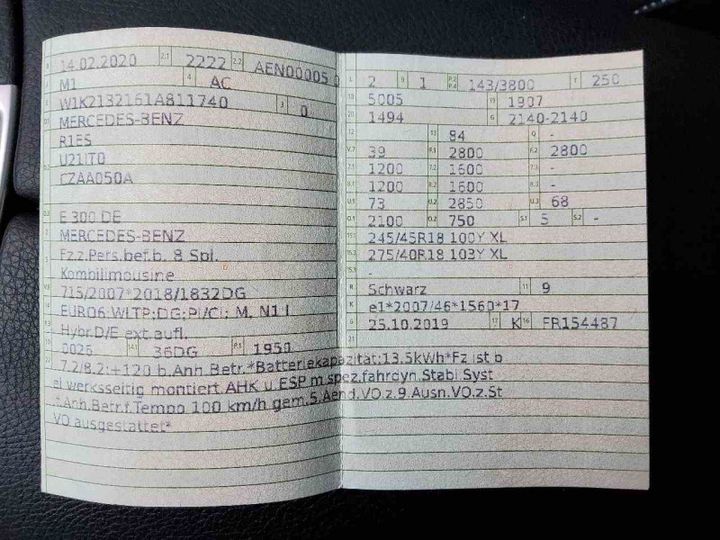 B 14.02.2020 2.1 2222 2.2 AEN00005 0
J M1 4 AC
E W1K2132161A811740 3 0
D.1 MERCEDES-BENZ
R1ES
U21IT0
CZAA050A
D.3 E 300 DE
2 MERCEDES-BENZ
5 Fz.z.Pers.bef.b. 8 Spl.
Kombilimousine
V.9 715/2007*2018/1832DG
EURO6;WLTP;DG;PI/CI; M, N1 I
Hybr.D/E ext.aufl.
10 0026 14.1 36DG P.1 1950
22 7.2/8.2:+120 b.Anh.Betr.*Batteriekapazität:13.5kWh*Fz ist b
ei werksseitig montiert.AHK u ESP m.spez.fahrdyn.Stabi.Syst
*Anh.Betr.f.Tempo 100 km/h gem.5.Aend.VO.z.9.Ausn.VO.z.St
VO ausgestattet*
L 2 9 1 P.2 P.4 143/3800 T 250
18 5005 19 1907
20 1494 G 2140-2140
12 13 84 Q -
V.7 39 F.1 2800 F.2 2800
7.1 1200 7.2 1600 7.3 -
8.1 1200 8.2 1600 8.3 -
U.1 73 U.2 2850 U.3 68
O.1 2100 O.2 750 S.1 5 S.2 -
15.1 245/45R18 100Y XL
15.2 275/40R18 103Y XL
15.3 -
R Schwarz 11 9
K e1*2007/46*1560*17
6 25.10.2019 17 K 16 FR154487
21